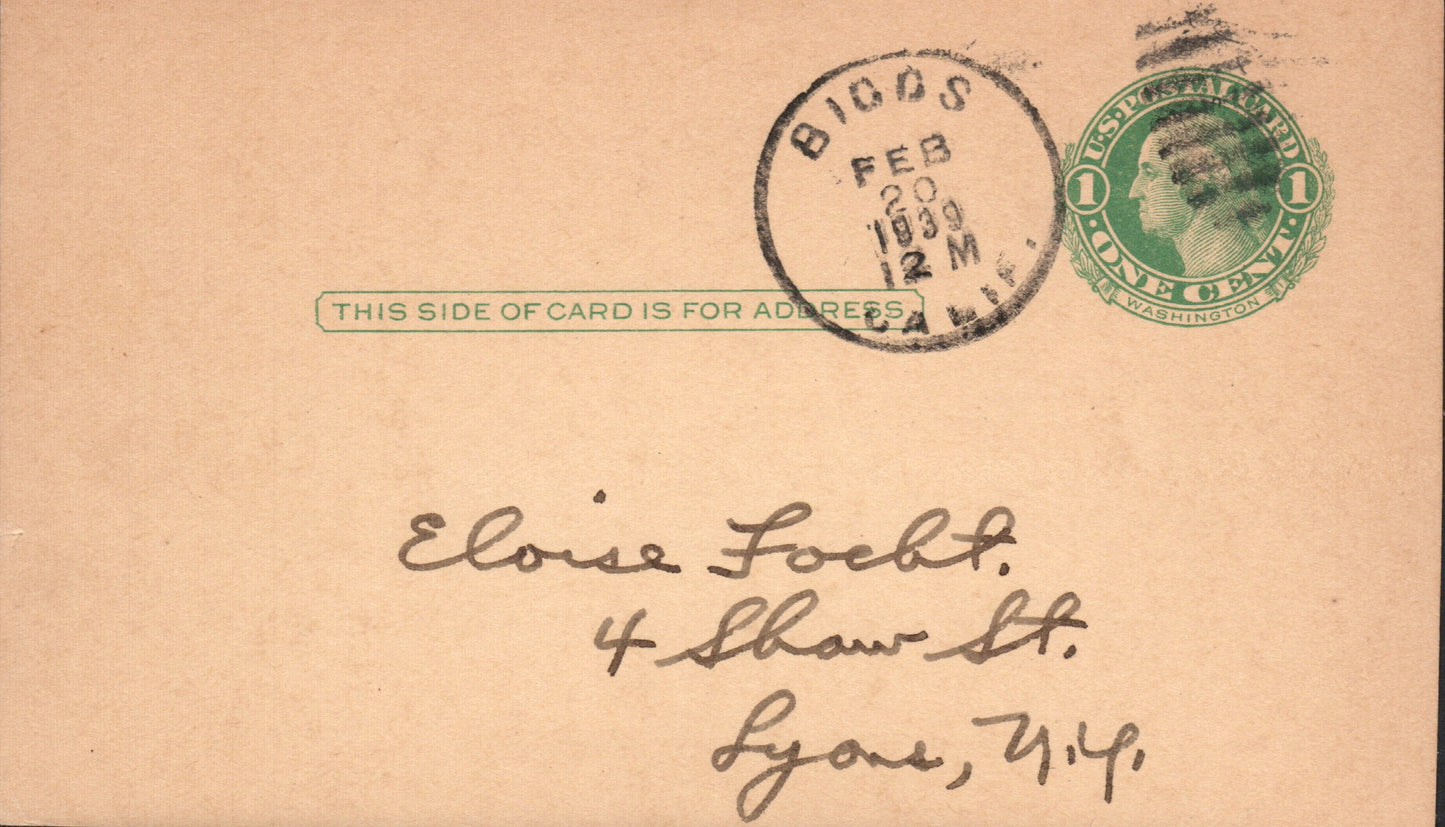 BIGGS
FEB
20
1939
12 M
CALIF.
U·S·POSTAL CARD
1 1
·ONE CENT·
WASHINGTON
THIS SIDE OF CARD IS FOR ADDRESS
Eloise Focht.
4 Shaw St.
Lyons, N.Y.